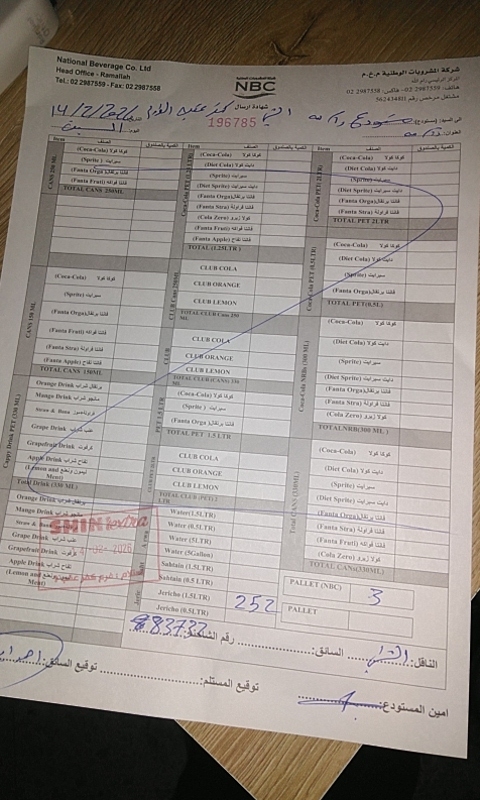 National Beverage Co. Ltd
Head Office - Ramallah
Tel.: 02 2987559 - Fax: 02 2987558
NBC
شركة المشروبات الوطنية م.ع.م
المركز الرئيسي رام الله
هاتف: 2987559 02 - فاكس: 2987558 02
مشتغل مرخص رقم 562434811
شهادة ارسال
196785
العنوان:
اليوم: السبت
Item الصنف الكمية بالصندوق
CANS 250 ML
(Coca-Cola) كوكا كولا
(Sprite) سبرايت
(Fanta Orga) فانتا برتقال
(Fanta Fruti) فانتا فواكه
TOTAL CANS 250ML
CANS 150 ML
(Coca-Cola) كوكا كولا
(Sprite) سبرايت
(Fanta Orga) فانتا برتقال
(Fanta Fruti) فانتا فواكه
(Fanta Stra) فانتا فراولة
(Fanta Apple) فانتا تفاح
TOTAL CANS 150ML
Cappy Drink PET (330 ML)
Orange Drink برتقال شراب
Mango Drink مانجو شراب
Grape Drink عنب شراب
Grapefruit Drink
Apple Drink تفاح شراب
(Lemon and Ment) ليمون ونعنع
Total Drink (330 ML)
Orange Drink برتقال شراب
Mango Drink مانجو شراب
Grape Drink عنب شراب
Grapefruit Drink
Apple Drink تفاح شراب
(Lemon and Ment)
SHINI extra
2026
Item الصنف الكمية بالصندوق
(Coca-Cola) كوكا كولا
(Diet Cola) دايت كولا
(Sprite) سبرايت
(Diet Sprite) دايت سبرايت
(Fanta Orga) فانتا برتقال
(Fanta Stra) فانتا فراولة
(Cola Zero) كولا زيرو
(Fanta Fruti) فانتا فواكه
(Fanta Apple) فانتا تفاح
TOTAL (1.25LTR)
CLUB Cans 250ml
CLUB COLA
CLUB ORANGE
CLUB LEMON
TOTAL CLUB Cans 250 ML
CLUB
CLUB COLA
CLUB ORANGE
CLUB LEMON
TOTAL CLUB (CANS) 330 ML
PET 1.5 LTR
(Coca-Cola) كوكا كولا
(Sprite) سبرايت
(Fanta Orga) فانتا برتقال
TOTAL PET 1.5 LTR
CLUB COLA
CLUB ORANGE
CLUB LEMON
TOTAL CLUB (PET) 2 LTR
Water(1.5LTR)
Water (0.5LTR)
Water (5LTR)
Water (5Gallon)
Sahtain (1.5LTR)
Sahtain (0.5 LTR)
Jericho (1.5LTR) 252
Jericho (0.5LTR)
Item الصنف الكمية بالصندوق
Coca-Cola PET( 2LTR)
(Coca-Cola) كوكا كولا
(Diet Cola) دايت كولا
(Sprite) سبرايت
(Diet Sprite) دايت سبرايت
(Fanta Orga) فانتا برتقال
(Fanta Stra) فانتا فراولة
TOTAL PET 2LTR
Coca-Cola PET (0.5LTR)
(Coca-Cola) كوكا كولا
(Diet Cola) دايت كولا
(Sprite) سبرايت
(Fanta Orga) فانتا برتقال
TOTAL PET(0.5L)
Coca-Cola NRBs (300 ML)
(Coca-Cola) كوكا كولا
(Diet Cola) دايت كولا
(Sprite) سبرايت
(Diet Sprite) دايت سبرايت
(Fanta Orga) فانتا برتقال
(Fanta Stra) فانتا فراولة
(Cola Zero) كولا زيرو
TOTALNRB(300 ML )
Total CANs (330ML)
(Coca-Cola) كوكا كولا
(Diet Cola) دايت كولا
(Sprite) سبرايت
(Diet Sprite) دايت سبرايت
(Fanta Orga) فانتا برتقال
(Fanta Stra) فانتا فراولة
(Fanta Fruti) فانتا فواكه
(Cola Zero) كولا زيرو
TOTAL CANs(330ML)
PALLET (NBC) 3
PALLET
الناقل: السائق: رقم الشاحنة:
توقيع المستلم: توقيع السائق:
امين المستودع: